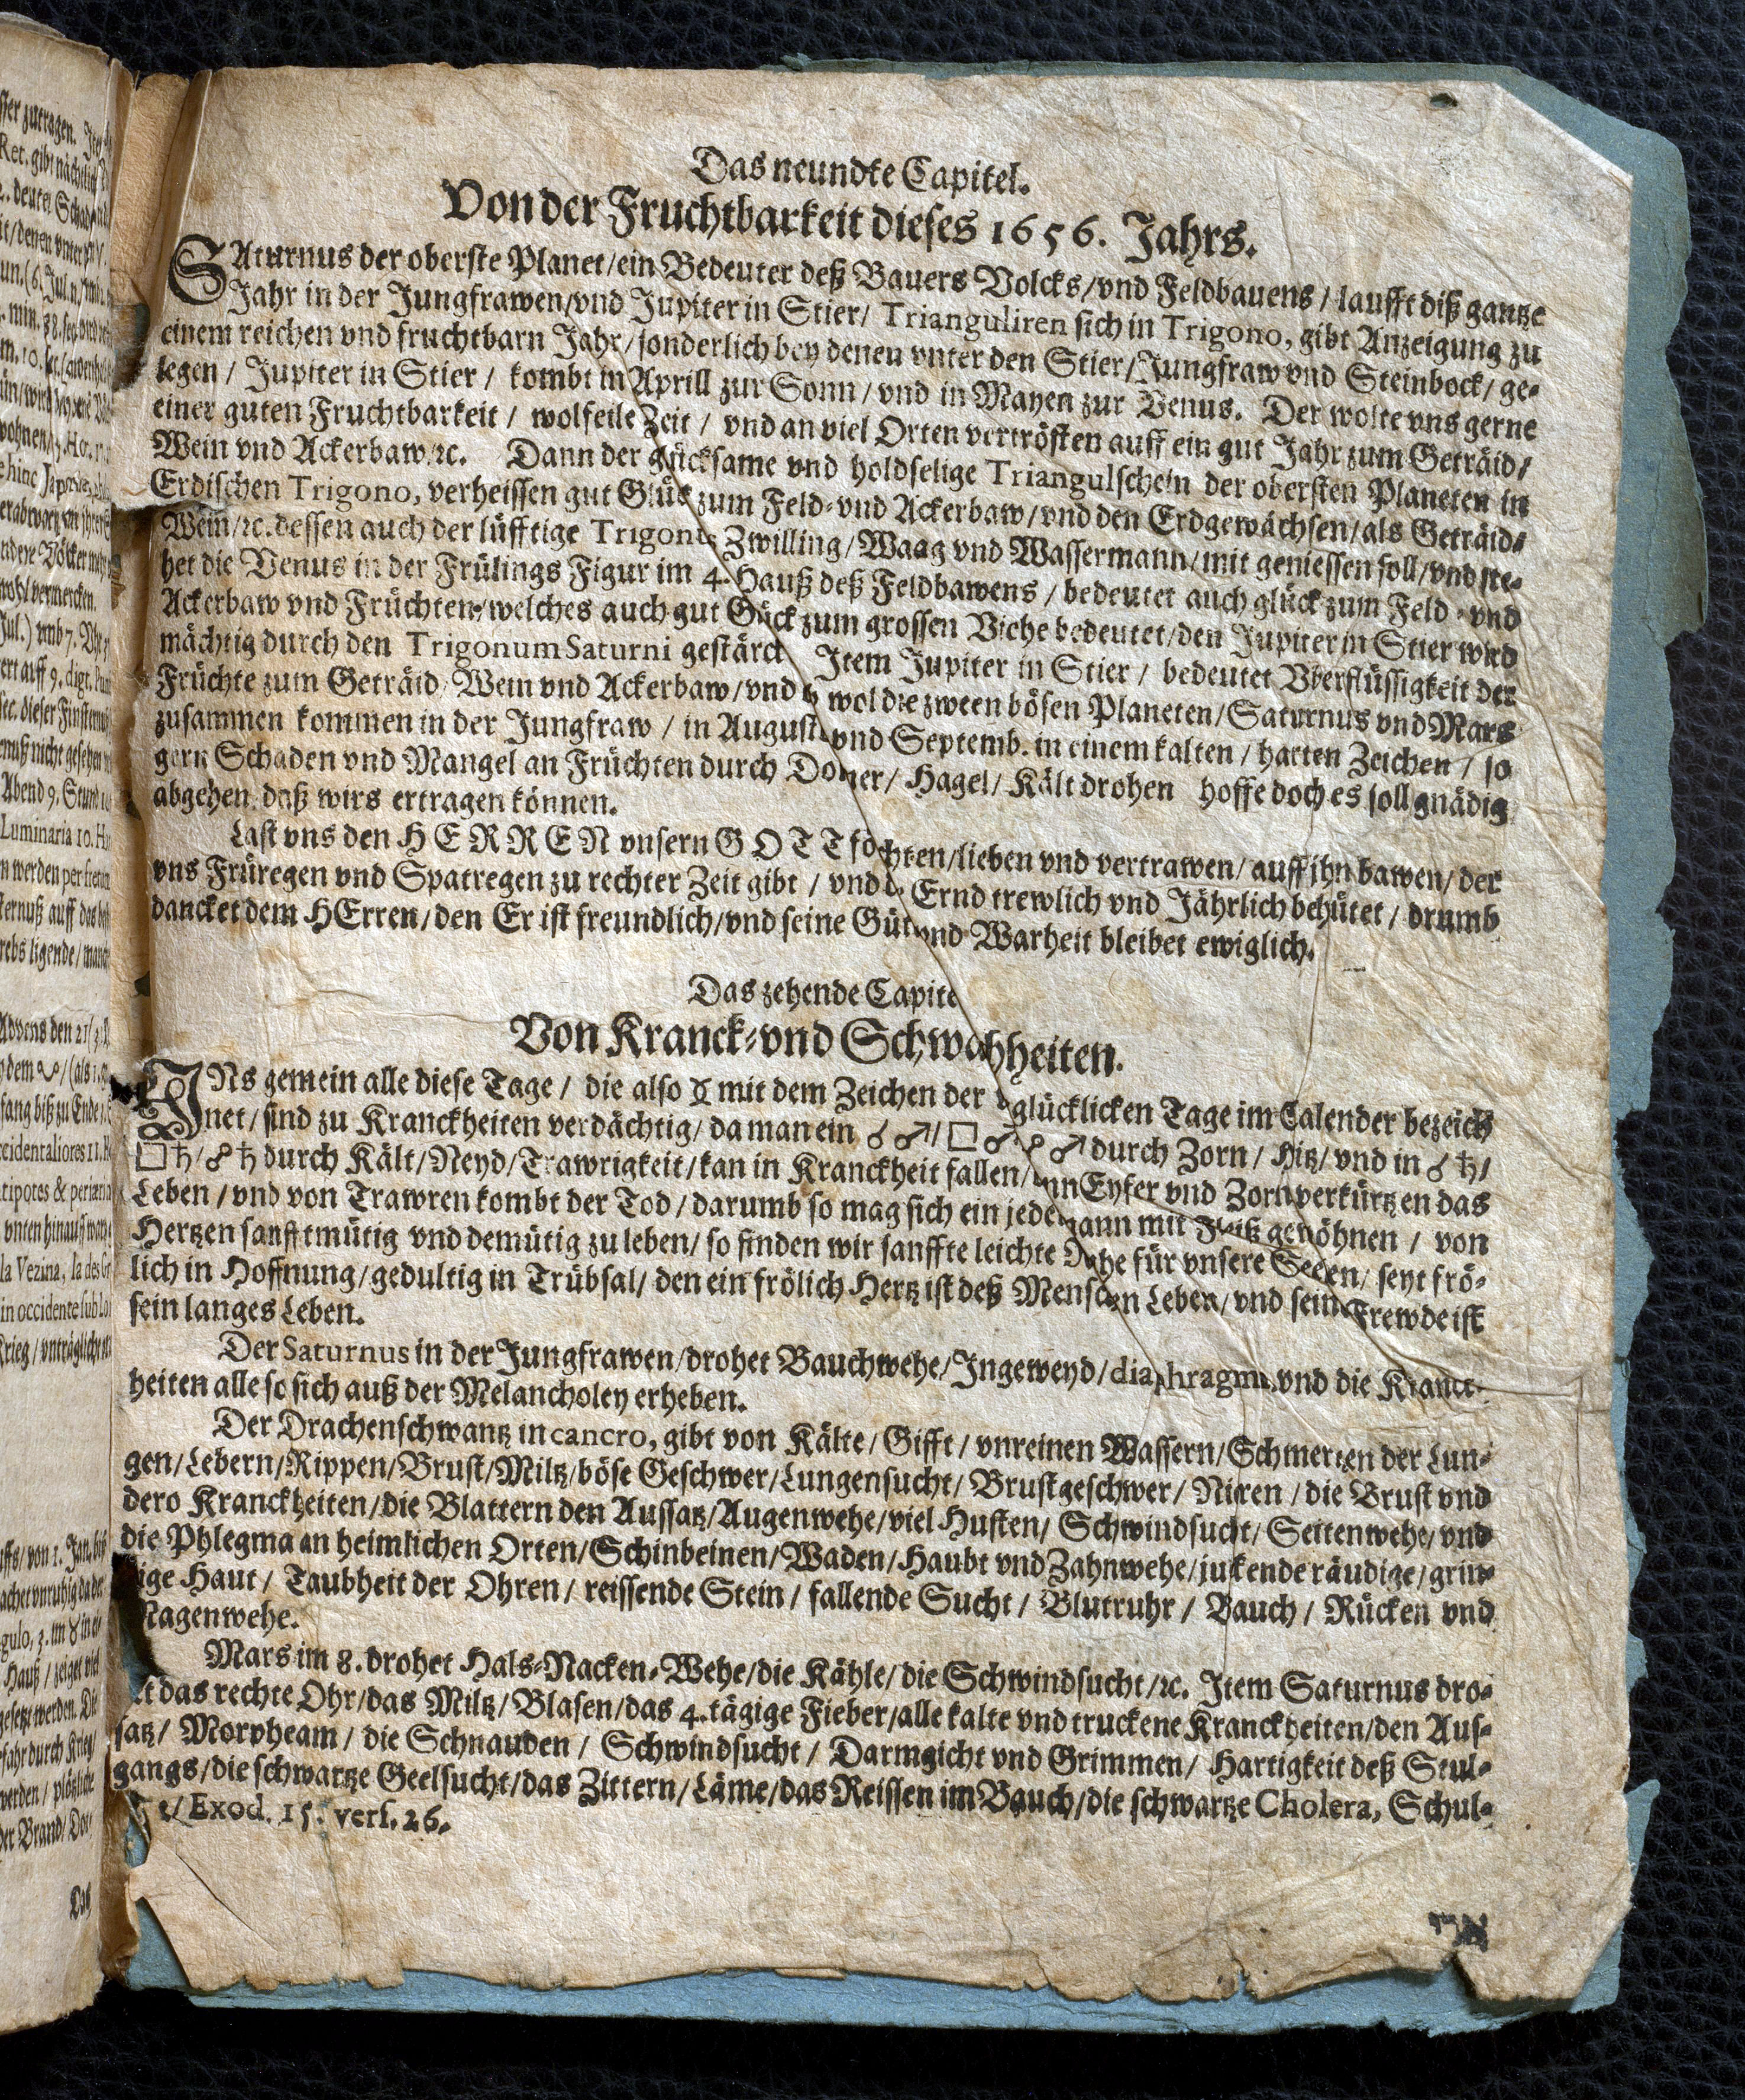 Das neundte Capitel.
Von der Fruchtbarkeit dieses 1656. Jahrs.
SAturnus der oberste Planet/ein Bedeuter deß Bauers Volcks/vnd Feldbauens / laufft diß gantze
Jahr in der Jungfrawen/vnd Jupiter in Stier/ Trianguliren sich in Trigono, gibt Anzeigung zu
einem reichen vnd fruchtbarn Jahr/sonderlich bey denen vnter den Stier/Jungfraw vnd Steinbock/ ge-
legen / Jupiter in Stier / kombt in Aprill zur Sonn/ vnd in Mayen zur Venus. Der wolte vns gerne
einer guten Fruchtbarkeit / wolfeile Zeit / vnd an viel Orten vertrösten auff ein gut Jahr zum Geträid/
Wein vnd Ackerbaw/ꝛc. Dann der glücksame vnd holdselige Triangulschein der obersten Planeten in
Erdischen Trigono, verheissen gut Glück zum Feld-vnd Ackerbaw/vnd den Erdgewächsen/als Geträid-
Wein/ꝛc. dessen auch der lüfftige Trigonus Zwilling/Waag vnd Wassermann/mit geniessen soll/vnd ste-
het die Venus in der Frülings Figur im 4. Hauß deß Feldbawens / bedeutet auch glück zum Feld-vnd
Ackerbaw vnd Früchten/welches auch gut Gück zum grossen Viehe bedeutet/den Jupiter in Stier wird
mächtig durch den Trigonum Saturni gestärck Item Jupiter in Stier / bedeutet Vberflüssigkeit der
Früchte zum Geträid/Wein vnd Ackerbaw/vnd wol die zween bösen Planeten/Saturnus vnd Mars
zusammen kommen in der Jungfraw / in August vnd Septemb. in einem kalten / harten Zeichen / so
gern Schaden vnd Mangel an Früchten durch Doner/ Hagel/ Kält drohen hoffe doch es soll gnädig
abgehen daß wirs ertragen können.
Last vns den HERREN vnsern GOTT föchten/lieben vnd vertrawen/ auff jhn bawen/ der
vns Früregen vnd Spatregen zu rechter Zeit gibt / vnd Ernd trewlich vnd Jährlich behütet / drumb
dancket dem HErren/den Er ist freundlich/vnd seine Güt vnd Warheit bleibet ewiglich.
Das zehende Capite
Von Kranck-vnd Schwahheiten.
INs gemein alle diese Tage / die also ☿ mit dem Zeichen der glücklicken Tage im Calender bezeich
net/ sind zu Kranckheiten verdächtig/ da man ein ☌ ♂/ □ ♂ ☍ ♂ durch Zorn / Hitz/ vnd in ☌ ♄/
□♄/☍♄ durch Kält/Neyd/Trawrigkeit/kan in Kranckheit fallen/ Eyfer vnd Zorn verkürtzen das
Leben / vnd von Trawren kombt der Tod / darumb so mag sich ein jedermann mit Fleiß gewöhnen / von
Hertzen sanfftmütig vnd demütig zu leben/ so finden wir sanffte leichte für vnsere Seelen/ seyt frö-
lich in Hoffnung/gedultig in Trübsal/ den ein frölich Hertz ist deß Menschen Leben/vnd seine Frewde ist
sein langes Leben.
Der Saturnus in der Jungfrawen/drohet Bauchwehe/Ingeweyd/diaphragma vnd die Kranck-
heiten alle so sich auß der Melancholey erheben.
Der Drachenschwantz in cancro, gibt von Kälte/Gifft/ vnreinen Wassern/Schmertzen der Lun-
gen/Lebern/Rippen/Brust/Miltz/böse Geschwer/Lungensucht/ Brustgeschwer/ Niren / die Brust vnd
dero Kranckheiten/die Blattern den Aussatz/Augenwehe/viel Husten/ Schwindsucht/ Seitenwehe/ vnd
die Phlegma an heimlichen Orten/Schinbeinen/Waden/Haubt vnd Zahnwehe/juckende räudige/grin-
ige Haut / Taubheit der Ohren / reissende Stein / fallende Sucht / Blutruhr / Bauch / Rücken vnd
Magenwehe.
Mars im 8. drohet Hals-Nacken-Wehe/die Kähle/die Schwindsucht/ꝛc. Item Saturnus dro-
et das rechte Ohr/das Miltz/Blasen/das 4.tägige Fieber/alle kalte vnd truckene Kranckheiten/den Aus-
satz/ Morpheam / die Schnauden / Schwindsucht / Darmgicht vnd Grimmen / Hartigkeit deß Stul-
gangs/die schwartze Geelsucht/das Zittern/Läme/das Reissen im Bauch/die schwartze Cholera, Schul-
/Exod. 15. vers. 26.